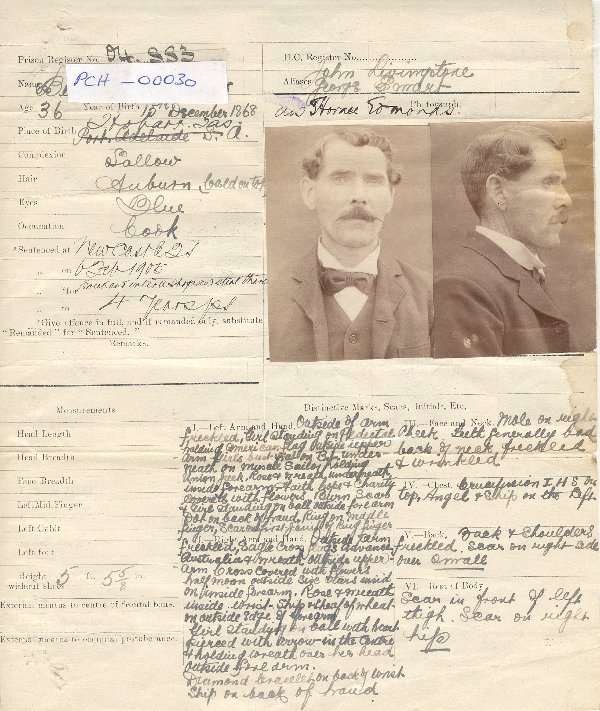 Prison Register No. 883
H.O. Register No.
PCH - 00030
Name
Aliases John Livingstone
George Smart
and Horace Edmonds.
Photograph.
Age 36 Year of Birth 15th December 1868
Place of Birth Hobart Tas
Port Adelaide S. A.
Complexion Sallow
Hair Auburn, bald on top
Eyes Blue
Occupation Cook
*Sentenced at Newcastle QS
" on 6 Feb 1905
" for
" to 4 Years ps
*Give offence in full, and if remanded only, substitute
"Remanded" for "Sentenced."
Remarks.
Measurements
Head Length
Head Breadth
Face Breadth
Left Mid. Finger
Left Cubit
Left foot
Height without shoes 5 ft. 5 5/8 in.
External meatus to centre of frontal bone.
External meatus to occipital protuberance.
Distinctive Marks, Scars, Initials, Etc.
I.—Left Arm and Hand, Outside of arm
freckled, Girl standing on Pedestal
holding American flag outside upper
arm Girls bust under-
neath on muscle Sailor holding
Union Jack, Rose & wreath underneath
inside forearm Faith Hope & Charity
covered with flowers, Burn scar
& Girl standing on ball outside forearm
Dot on back of hand, Ring on middle
finger, Scar on first joint of Ring finger
II.—Right Arm and Hand, Outside arm
freckled, Eagle Cross flags Advance
Australia & wreath outside upper
arm Cross covered with flowers
half moon outside six stars inside
on inside forearm. Rose & wreath
inside wrist Ship & sheaf of wheat
on outside edge of forearm
Girl standing on ball with heart
pierced with arrow in the centre
& holding wreath over her head
outside fore arm.
Diamond bracelet on back of wrist
Ship on back of hand
III.—Face and Neck, Mole on right
Cheek Teeth generally bad
back of neck freckled
& wrinkled
IV.—Chest, Crucifixion I H S on
top, Angel & Ship on the left.
V.—Back, Back & Shoulders
freckled, scar on right side
over small
VI.—Rest of Body
Scar in front of left
thigh. Scar on right
hip